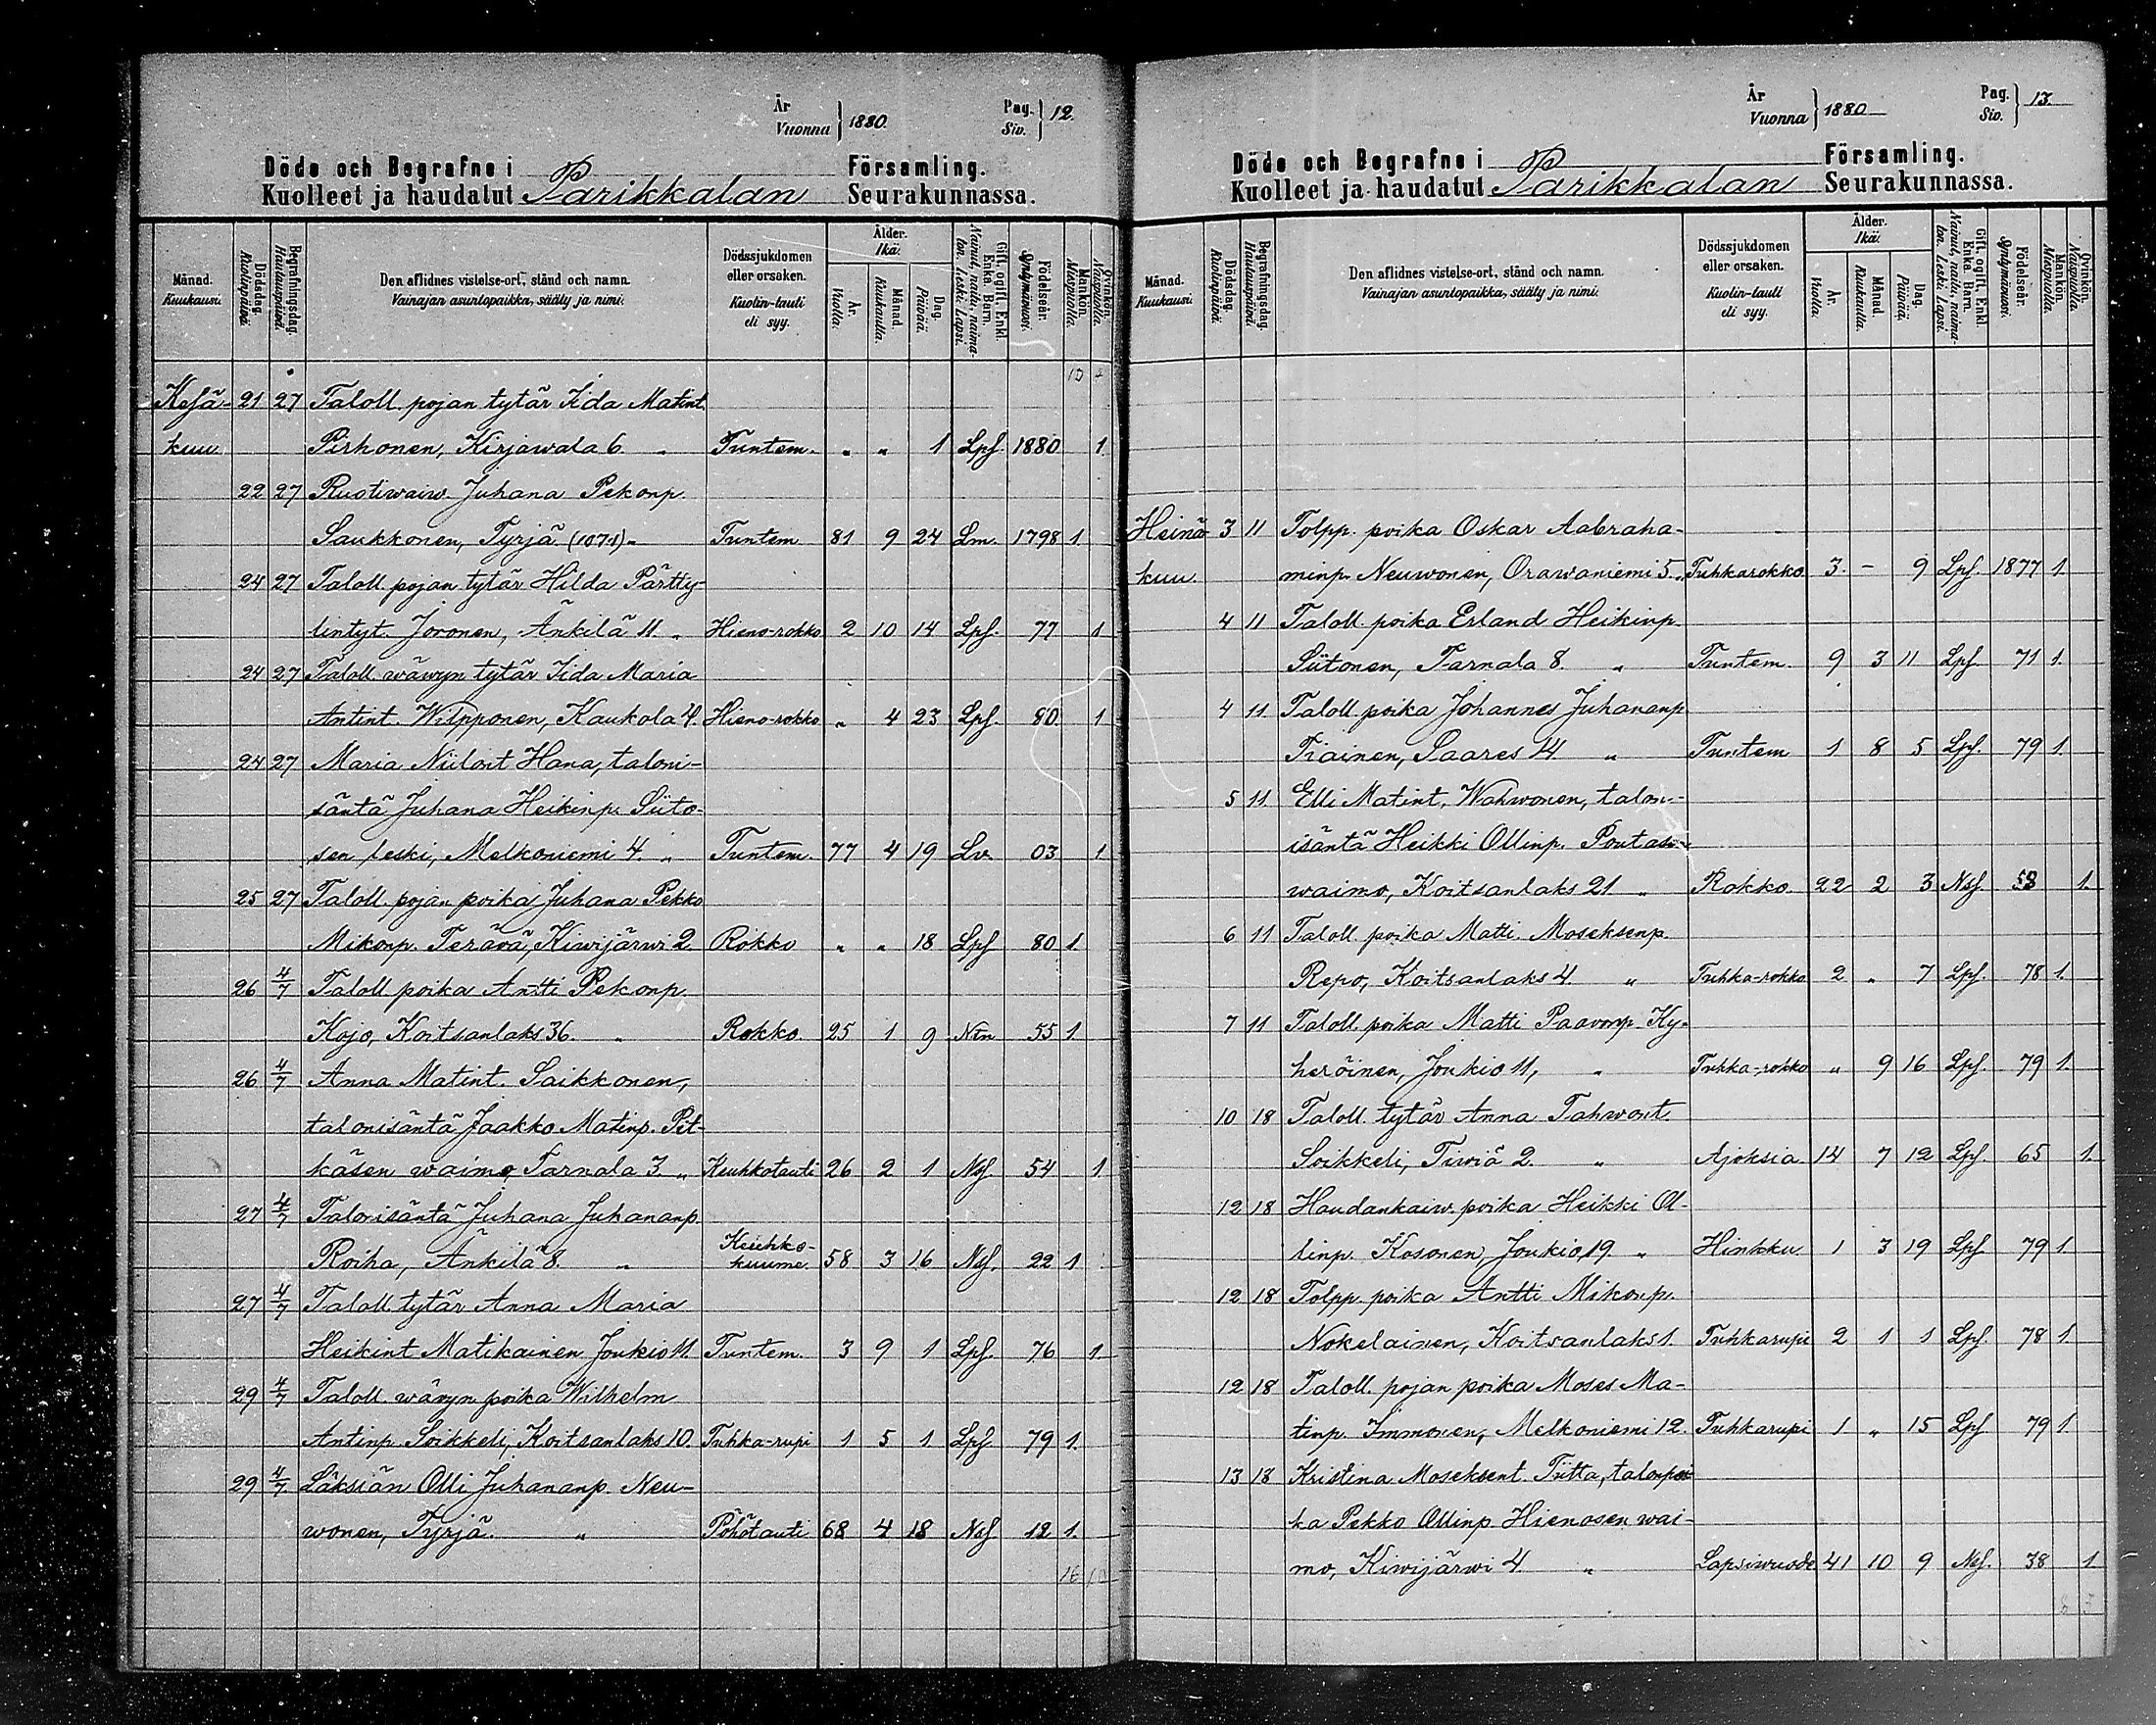 År
Vuonna } 1880.
Pag.
Siv. } 12.
Döde och Begrafne i Församling.
Kuolleet ja haudatut Parikkalan Seurakunnassa.
Månad. Kuukausi.
Dödsdag. Kuolinpäivä.
Begrafningsdag. Hautauspäivä.
Den aflidnes vistelse-ort, stånd och namn. Vainajan asuntopaikka, sääty ja nimi.
Dödssjukdomen eller orsaken. Kuolin-tauti eli syy.
Ålder. Ikä.
År. Vuotta.
Månad. Kuukautta.
Dag. Päivää.
Gift, ogift, Enkl. Enka. Barn. Nainut, naitu, naimaton. Leski. Lapsi.
Födelseår. Syntymävuosi.
Mankön. Miespuolia.
Qvinkön. Naispuolia.
Kesä- 21 27 Taloll. pojan tytär Iida Matint.
kuu Pirhonen, Kirjawala 6 „ Tuntem. „ „ 1 Lps. 1880 1.
22 27 Rustiwaiw. Juhana Pekonp.
Saukkonen, Tyrjä (1071) „ Tuntem 81 9 24 Lm. 1798 1.
24 27 Taloll. pojan tytär Hilda Pärtty-
lintyt. Joronen, Änkilä 11. „ Hieno-rokko 2 10 14 Lps. 77 1
24 27 Taloll. wäwyn tytär Iida Maria
Antint. Wilpponen, Kaukola 4. Hieno-rokko „ 4 23 Lps. 80 1
24 27 Maria Niilont Hana, taloni-
säntä Juhana Heikinp. Siito-
sen leski, Melkoniemi 4. „ Tuntem. 77 4 19 Lv. 03 1
25 27 Taloll. pojan poika Juhana Pekko
Mikonp. Terävä, Kiwijärwi 2 Rokko „ „ 18 Lps 80 1.
26 4/7 Taloll. poika Antti Pekonp.
Kojo, Koitsanlaks 36. „ Rokko. 25 1 9 Ntn 55 1.
26 4/7 Anna Matint. Saikkonen,
talonisäntä Jaakko Matinp. Pit-
käsen waimo, Tarnala 3. „ Keuhkotauti 26 2 1 Ns 54 1
27 4/7 Talonisäntä Juhana Juhananp.
Roiha, Änkilä 8. „ Keuhko-kuume. 58 3 16 Ns. 22 1
27 4/7 Taloll. tytär Anna Maria
Heikint Matikainen Joukio 11. Tuntem. 3 9 1 Lps. 76 1.
29 4/7 Taloll. wäwyn poika Wilhelm
Antinp. Soikkeli, Koitsanlaks 10. Tuhka-rupi 1 5 1 Lps. 79 1.
29 4/7 Läksiän Olli Juhananp. Neu-
wonen, Tyrjä. „ Pöhötauti 68 4 18 Ns 12 1.
År
Vuonna } 1880
Pag.
Siv. } 13.
Döde och Begrafne i Församling.
Kuolleet ja haudatut Parikkalan Seurakunnassa.
Månad. Kuukausi.
Dödsdag. Kuolinpäivä.
Begrafningsdag. Hautauspäivä.
Den aflidnes vistelse-ort, stånd och namn. Vainajan asuntopaikka, sääty ja nimi.
Dödssjukdomen eller orsaken. Kuolin-tauti eli syy.
Ålder. Ikä.
År. Vuotta.
Månad. Kuukautta.
Dag. Päivää.
Gift, ogift, Enkl. Enka. Barn. Nainut, naitu, naimaton. Leski. Lapsi.
Födelseår. Syntymävuosi.
Mankön. Miespuolia.
Qvinkön. Naispuolia.
Heinä- 3 11 Tolpp. poika Oskar Aabraha-
kuu. minp. Neuwonen, Orawaniemi 5. „ Tuhkarokko 3. - 9 Lps. 1877 1.
4 11 Taloll. poika Erland Heikinp.
Siitonen, Tarnala 8. „ Tuntem. 9 3 11 Lps. 71 1.
4 11 Taloll. poika Johannes Juhananp
Tiainen, Saares 14. „ Tuntem 1 8 5 Lps. 79 1.
5 11 Elli Matint, Wahwonen, talon-
isäntä Heikki Ollinp. Pontasen
waimo, Koitsanlaks 21. „ Rokko. 22 2 3 Ns 58 1.
6 11 Taloll. poika Matti. Moseksenp.
Repo, Koitsanlaks 4. „ Tuhka-rokko 2 „ 7 Lps. 78 1.
7 11 Taloll. poika Matti Paavonp. Ky-
heröinen, Joukio 11, „ Tuhka-rokko „ 9 16 Lps. 79 1.
10 18 Taloll. tytär Anna Tahwont.
Soikkeli, Tiwiä 2. „ Ajoksia 14 7 12 Lps. 65 1.
12 18 Haudankaiw. poika Heikki Ol-
linp. Kosonen, Joukio 19. „ Hinkku 1 3 19 Lps. 79 1.
12 18 Tolpp. poika Antti Mikonp.
Nokelainen, Koitsanlaks 1. Tuhkarupi 2 1 1 Lps. 78 1.
12 18 Taloll. pojan poika Moses Ma-
tinp. Immonen, Melkoniemi 12. Tuhkarupi 1 „ 15 Lps. 79 1.
13 18 Kristina Moseksent. Tiitta, talonpoi-
ka Pekko Ollinp. Hienosen wai-
mo, Kiwijärwi 4. „ Lapsiwuode 41 10 9 Ns. 38 1